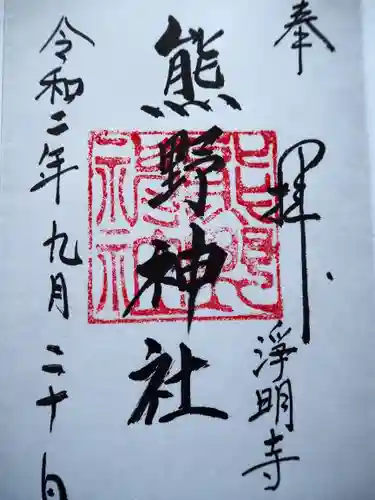 奉拝
淨明寺
熊野神社
令和二年九月二十日
熊野神社